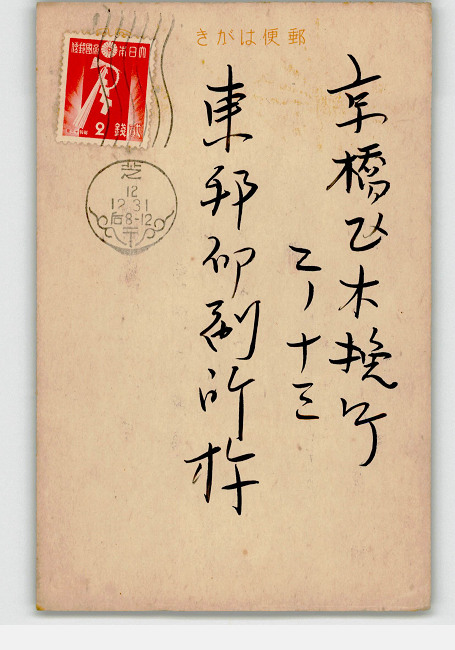 郵便はがき
京橋区木挽町
二ノ十三
東邦印刷所
大日本帝國郵便
弐錢
2
芝
12
12.31
后8-12